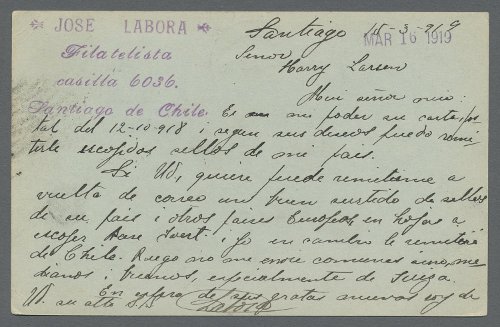 JOSE LABORA
Filatelista
casilla 6036.
Santiago de Chile
Santiago 15-3-919
MAR 16 1919
Señor
Harry Larsen
Mui señor mio:
En mi poder su carta pos
tal del 12-10-918 i segun sus deseos puedo remi
tirle escojidos sellos de mi pais.
Si Ud, quiere puede remitirme a
vuelta de correo un buen surtido de sellos
de su pais i otros paises Europeos, en hojas a
escojer Yvert i yo en cambio le remitiré
de Chile. Ruego no me envie comunes sino, me
dianos i buenos, especialmente de Suiza.
En espera de sus gratas nuevas soy de
Ud. su atto S.S. Labora